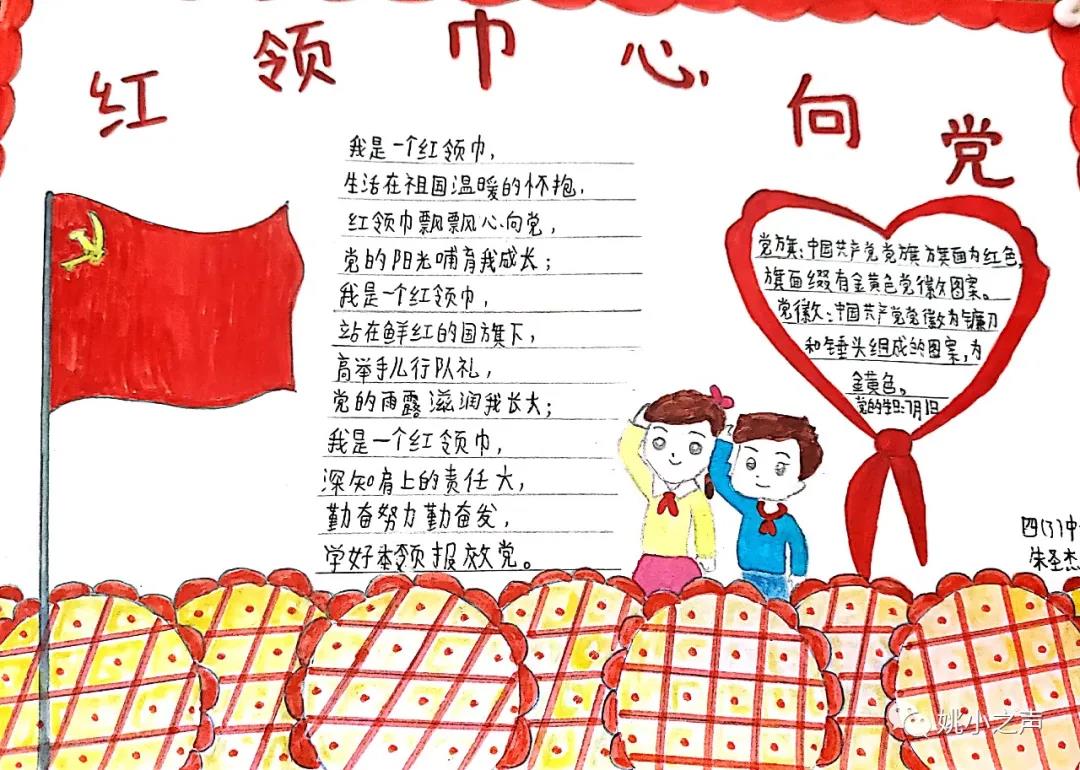 红领巾心向党
我是一个红领巾，
生活在祖国温暖的怀抱，
红领巾飘飘心向党，
党的阳光哺育我成长；
我是一个红领巾，
站在鲜红的国旗下，
高举手儿行队礼，
党的雨露滋润我长大；
我是一个红领巾，
深知肩上的责任大，
勤奋努力勤奋发，
学好本领报效党。
党旗：中国共产党党旗旗面为红色，
旗面缀有金黄色党徽图案。
党徽：中国共产党党徽为镰刀
和锤头组成的图案，为
金黄色。
党的生日：7月1日
四(7)中
朱圣杰
姚小之声